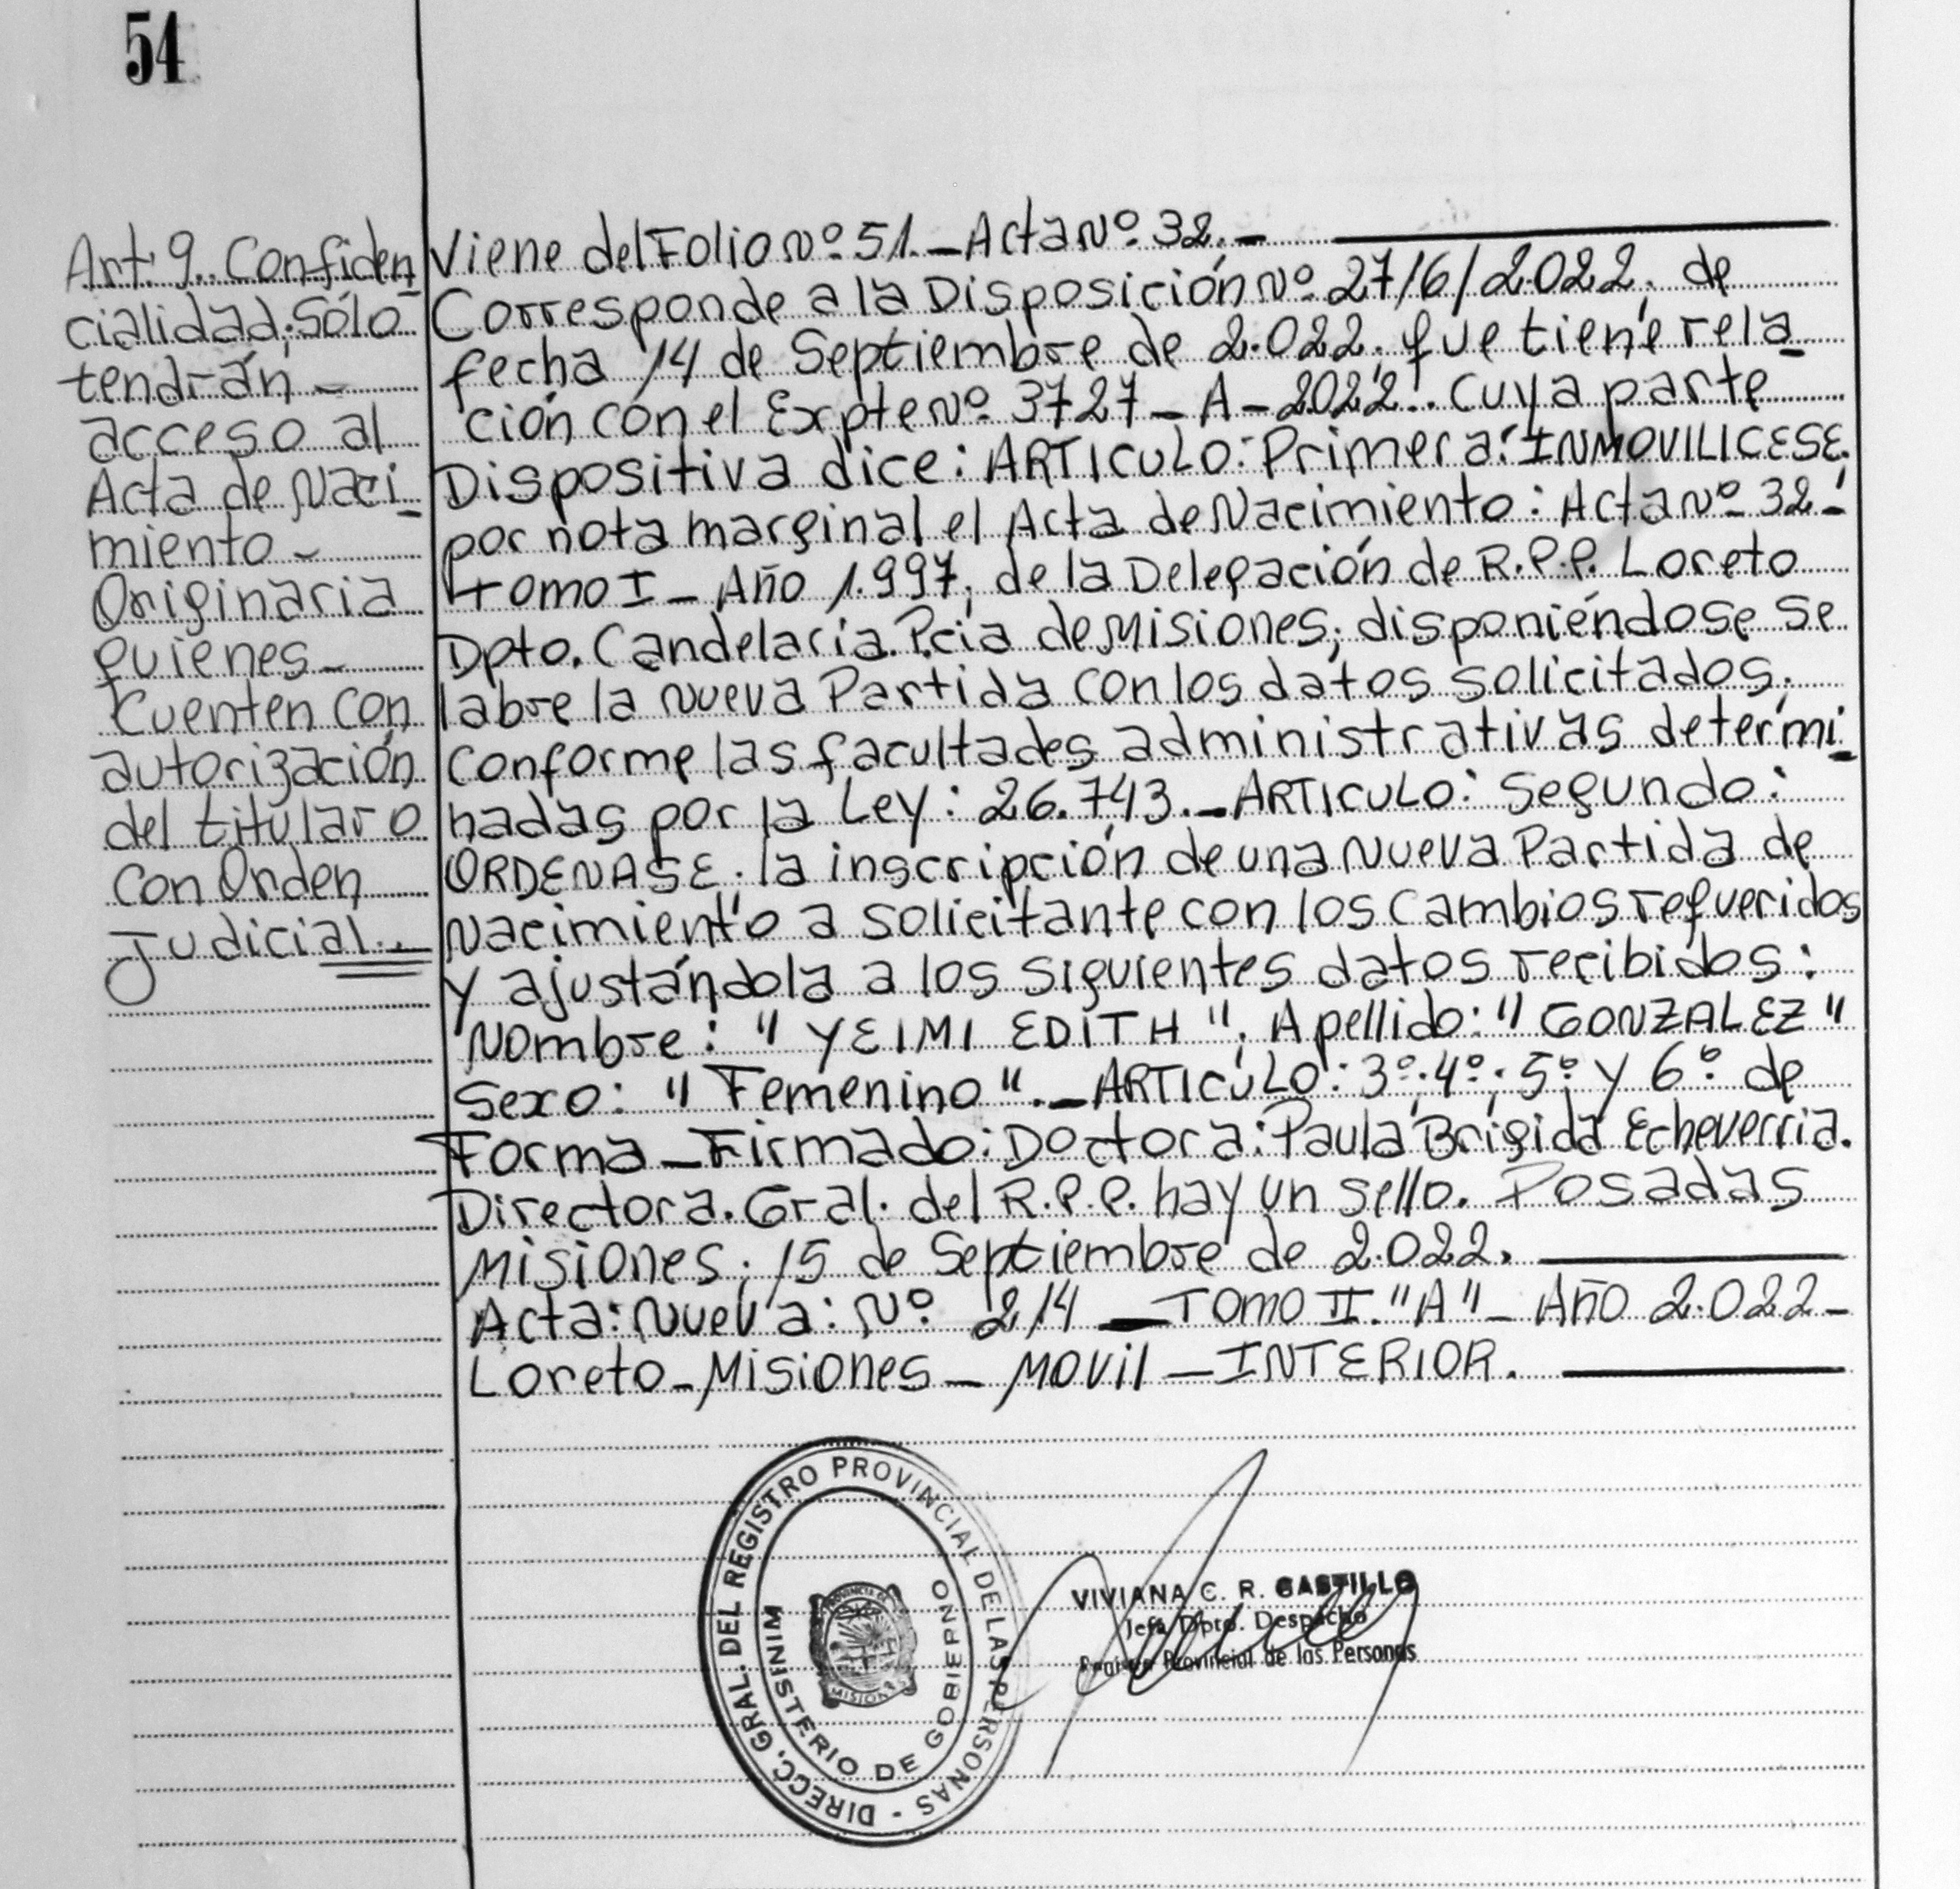 54
Art: 9.. Confiden
cialidad; Sólo
tendrán -
acceso al
Acta de Naci
miento -
Originaria
quienes -
Cuenten con
autorización
del titular o
con Orden
Judicial..
Viene del Folio Nº 51. - Acta Nº 32. -
Corresponde a la Disposición Nº 2716/2.022, de
fecha 14 de Septiembre de 2.022, que tiene rela
ción con el Expte Nº 3727 - A - 2022.. cuya parte
Dispositiva dice: ARTICULO: Primera: INMOVILICESE.
por nota marginal el Acta de Nacimiento: Acta Nº 32 -
tomo I - Año 1.997, de la Delegación de R.P.P. Loreto
Dpto. Candelaria. Pcia de Misiones; disponiéndose se
labre la nueva Partida con los datos solicitados.
Conforme las facultades administrativas determi
nadas por la Ley: 26.743. - ARTICULO: Segundo:
ORDENASE. la inscripción de una Nueva Partida de
Nacimiento a solicitante con los cambios requeridos
y ajustándola a los siguientes datos recibidos:
Nombre: "YEIMI EDITH". Apellido: "GONZALEZ"
Sexo: "Femenino". - ARTICULO: 3º; 4º; 5º y 6º de
Forma - Firmado: Doctora: Paula Brigida Echeverria.
Directora. Gral. del R.P.P. hay un sello. Posadas
Misiones; 15 de Septiembre de 2.022.
Acta: Nueva: Nº 214 - Tomo II. "A" - Año 2.022 -
Loreto - Misiones - MOVIL - INTERIOR.
DIRECC. GRAL. DEL REGISTRO PROVINCIAL DE LAS PERSONAS -
MINISTERIO DE GOBIERNO
MISIONES
VIVIANA C. R. CASTILLO
Jefa Dpto. Despacho
Registro Provincial de las Personas